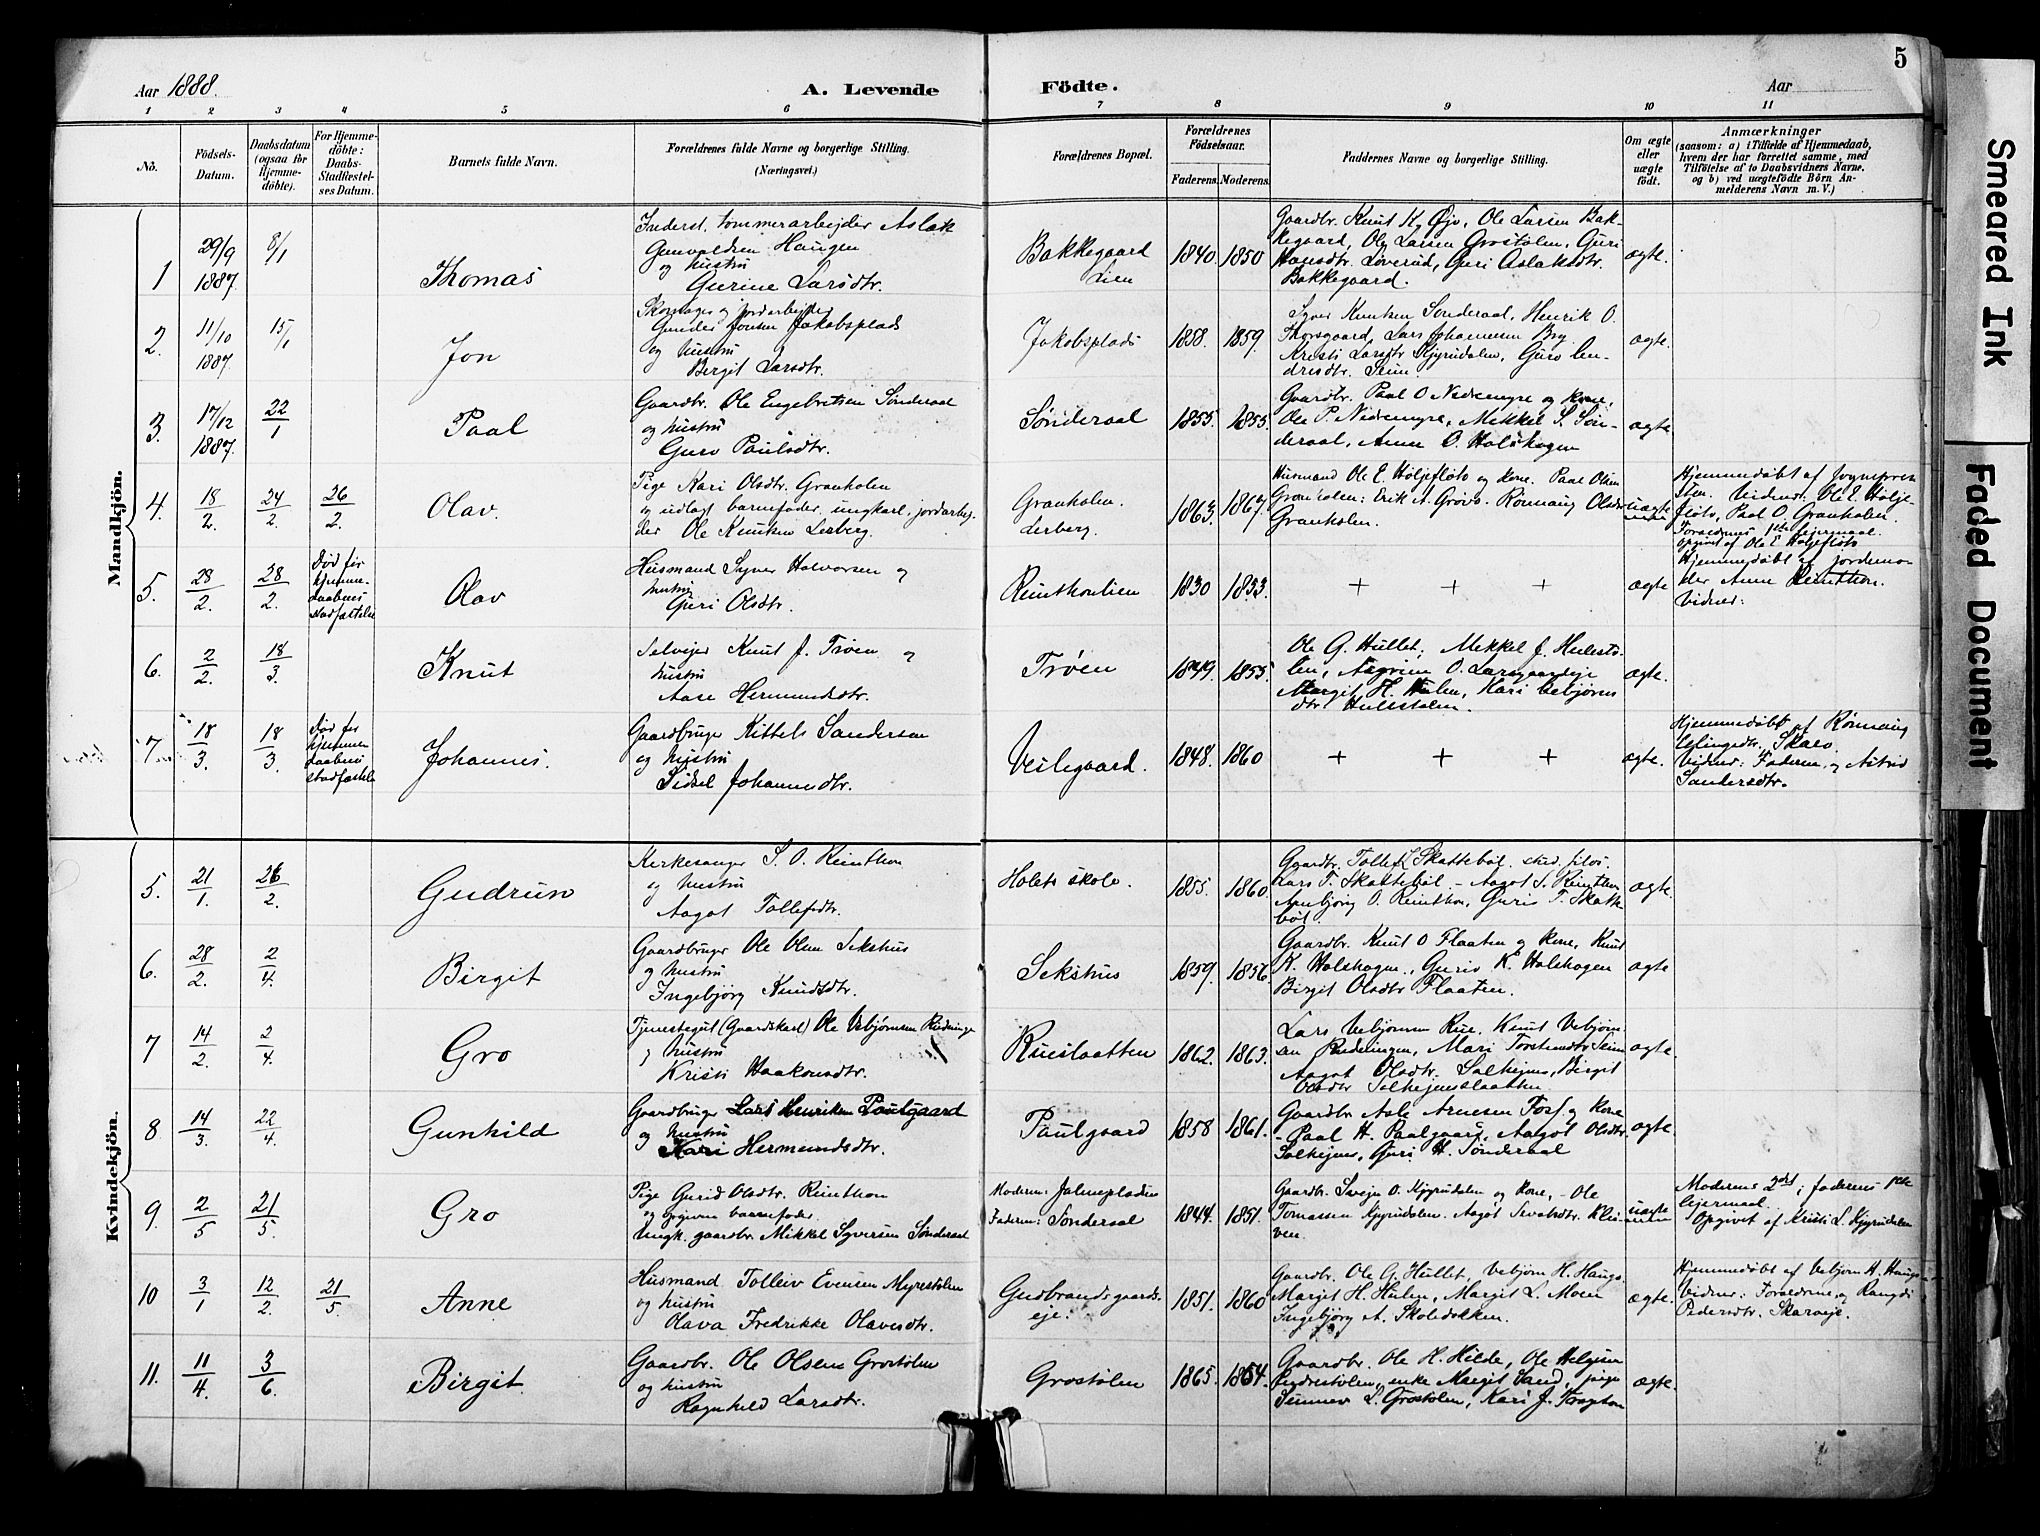 5
Aar 1888.
A. Levende Födte.
Aar
1 2 3 4 5 6 7 8 9 10 11
No.
Födsels-
Datum.
Daabsdatum
(ogsaa for
Hjemme-
döbte).
For Hjemme-
döbte:
Daabs-
Stadfæstel-
ses Datum.
Barnets fulde Navn.
Forældrenes fulde Navne og borgerlige Stilling.
(Næringsvei.)
Forældrenes Bopæl.
Forældrenes
Födselsaar.
Faderens. Moderens.
Faddernes Navne og borgerlige Stilling.
Om ægte
eller
uægte
födt.
Anmærkninger
(saasom: a) i Tilfælde af Hjemmedaab,
hvem der har forrettet samme, med
Tilföielse af to Daabsvidners Navne,
og b) ved uægtefödte Börn An-
melderens Navn m. V.)
Mandkjön.
1
29/9
1887.
8/1
Thomas
Inderst. tømmerarbejder Aslak
Gunvaldsen Haugen
og hustru
Gurine Larsdtr.
Bakkegaard
Lien
1840. 1850
Gaardbr. Knut K. Øjo, Ole Larsen Bak-
kegaard, Ole Larsen Grostølen, Guri
Hansdtr. Løverud, Guri Aslaksdtr.
Bakkegaard.
ægte.
2.
11/10
1887.
15/1
Jon
Skomager og jordarbejder
Gunder Jonsen Jakobsplads
og hustru
Birgit Larsdtr.
Jakobsplads
1858. 1859.
Syver Knutsen Sønderaal, Henrik O.
Thorsgaard, Lars Johannesen Bry
Kristi Larsdtr. Kjyrudalen, Guro En-
dresdtr. Seim.
ægte.
3.
17/12
1887.
22/1
Paal
Gaardbr. Ole Engebretsen Sønderaal
og hustru
Guro Paulsdtr.
Sønderaal
1855. 1855.
Gaardbr. Paal O Nedremyre og kone,
Ole P. Nedremyre, Mekkel S. Søn-
deraal, Anne O. Halshagen
ægte.
4.
18/2.
24/2.
26/2.
Olav.
Pige Kari Olsdtr. Granholen
og udlagt barnefader, ungkarl, jordarbej-
der Ole Knutsen Lerberg.
Granholen.
Lerberg.
1863. 1867.
Husmand Ole E. Høljeflôto og kone. Paal Olsen
Granholen: Erik A. Grøvo. Rønnaug Olsdr
Granholen.
uægte
Hjemmedøbt af Sognepræ-
sten. Vidner: Ole E. Hølje-
flôto, Paal O. Granholen.
Forældrenes 1ste Lejermaal.
opgivet af Ole E Høljeflôto
5.
28/2.
28/2.
Død før
hjemme-
daabens
stadfæstelse
Olav
Husmand Syver Halvorsen og
hustru
Guri Olsdtr.
Reinthonlien
1830 1853.
+ + +
ægte
Hjemmedøbt af jordemo-
der Anne Reinthon.
Vidner:
6.
2/2.
18/3.
Knut
Selvejer Knut J. Trøen og
hustru
Aase Hermundsdtr.
Trøen
1849. 1855.
Ole G. Hullet, Mekkel J. Hulesto-
len, Asgrim O. Larsgaardeje
Margit H. Hulen, Kari Vebjørns
dtr. Hulestolen.
ægte.
7
18/3.
18/3.
Død før
hjemme-
daabens
stadfæstelse
Johannes.
Gaardbruger Kittel Sandersen
og hustru
Sidsel Johannesdtr.
Veslegaard.
1848. 1860
+ + +
ægte.
Hjemmedøbt af Rønnaug
Erlingsdr. Skaro.
Vidner: Faderen og Astrid
Sandersdtr.
Kvindekjön.
5.
21/1.
26/2.
Gudrun
Kirkesanger S. O. Reinthon
og hustru
Aagot Tollefsdtr.
Holets skole.
1855. 1860.
Gaardbr. Tollef L Skattebøl. stud. filos.
Lars T. Skattebøl - Aagot S. Reinthon
Arnbjørg O. Reinthon, Guri T. Skatte-
bøl.
ægte.
6.
28/2.
2/4.
Birgit
Gaardbruger Ole Olsen Sekshus
og hustru
Ingebjørg Knudsdtr.
Sekshus
1859. 1856.
Gaardbr. Knut O Flaaten og Kone, Knut
K. Halshagen, Guriv K. Halshagen
Birgit Olsdtr Flaaten.
ægte
7
14/2.
2/4.
Gro
Tjenestegut (Gaardskarl) Ole Vebjørnsen Rudningen
og hustru
Kristi Haakonsdtr.
Rueslaatten
1862. 1863.
Lars Vebjørnsen Rue, Knut Vebjørn-
sen Rudningen, Mari Torstensdtr Seim
Aagot Olsdtr. Solhejms, Birgit
Olsdtr Solhejmslaatten.
ægte.
8
14/3.
22/4.
Gunhild
Gaardbruger Lars Henriksen Paulgaard
og hustru
Kari Hermundsdtr.
Paulgaard
1858 1861.
Gaardbr Asle Arnesen Torf og Kone
- Paal H. Paalgaard, Aagot Olsdtr.
Solhejms, Guri H. Sønderaal
ægte.
9.
2/5
21/5.
Gro
Pige Gurid Olsdtr. Reinthon
og opgiven barnefader
Ungk. gaardbr. Mikkel Syversen Sønderaal
Moderen: Jalmepladsen
Faderen: Sønderaal
1844. 1851.
Gaardbr. Svejn O. Kjyrudalen og kone, - Ole
Tomassen Kjyrudalen. Aagot Sevatsdtr. Klei-
ven.
uægte
Moderens 2det, faderens 1ste
Lejermaal.
Opgivet af Kristi L. Kjyrudalen
10
3/1
12/2.
21/5
Anne
Husmand Tolleiv Evensen Myrestølen
og hustru
Olava Fredrikke Olavesdtr.
Gudbrandsgaards-
eje.
1851. 1860
Gaardbr. Ole G. Hullet, Vebjørn H. Haugs.
Margit H. Hulen, Margit L. Moen
Ingebjørg A. Skoledokken.
ægte.
Hjemmedøbt af Vebjørn H. Haugs.
Vidner: Forældrene, og Rangdi
Pedersdtr. Skaroeje.
11.
11/4.
3/6.
Birgit.
Gaardbr. Ole Olsen Grostølen
og hustru
Ragnhild Larsdtr.
Grostølen
1865. 1854.
Gaardbr. Ole H. Hilde, Ole Helgesen
Endrestølen, enke Margit Sand, pige
Sunnev L. Grostølen, Kari J. Tragton
ægte.
Smeared Ink
Faded Document